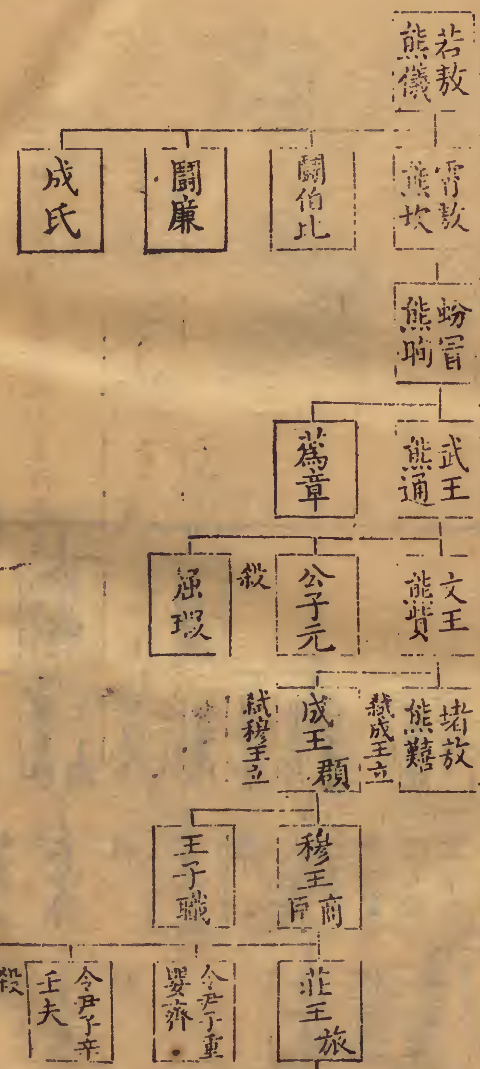 若敖
熊儀
霄敖
熊坎
鬪伯比
鬪廉
成氏
蚡冒
熊昫
武王
熊通
蒍章
文王
熊貲
公子元
殺
屈瑕
堵敖
熊囏
弒成王立
成王
頵
弒穆王立
穆王
商臣
王子職
莊王
旅
令尹子重
嬰齊
令尹子辛
壬夫
殺